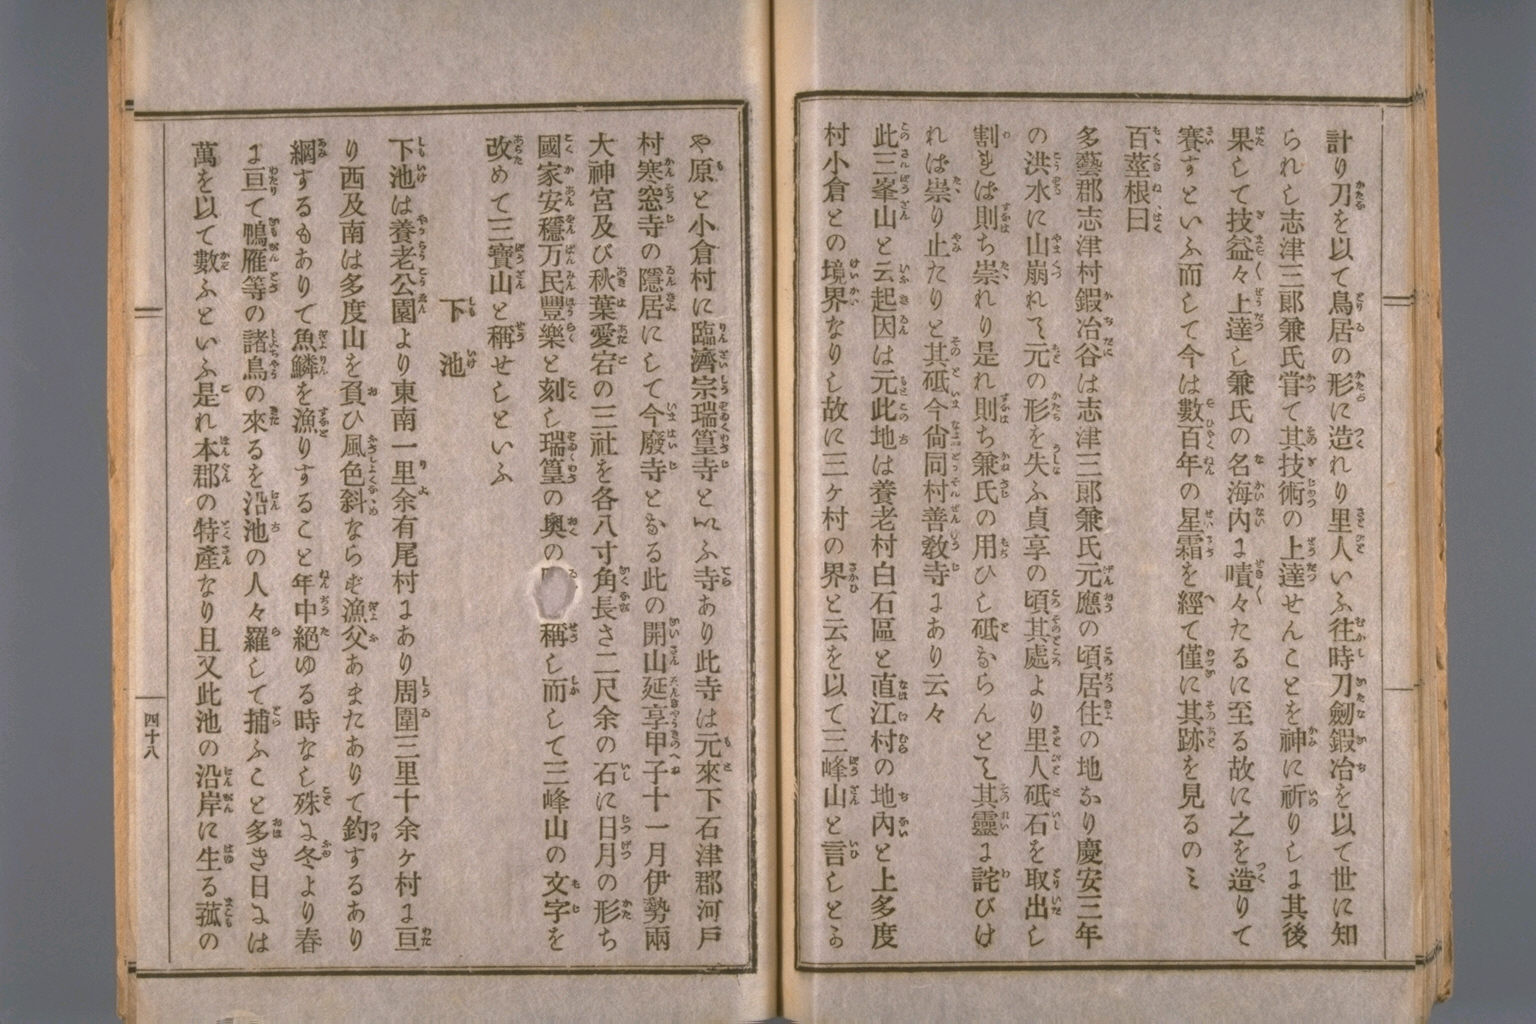 計り刀を以て鳥居の形に造れり里人いふ往時刀劒鍜冶を以て世に知
られし志津三郎兼氏甞て其技術の上達せんことを神に祈りしに其後
果して技益々上達し兼氏の名海内に嘖々たるに至る故に之を造りて
賽すといふ而して今は數百年の星霜を經て僅に其跡を見るのミ
百莖根曰
多藝郡志津村鍜冶谷は志津三郎兼氏元應の頃居住の地なり慶安三年
の洪水に山崩れて元の形を失ふ貞享の頃其處より里人砥石を取出し
割れば則ち祟れり是れ則ち兼氏の用ひし砥ならんとて其靈に詫びけ
れば祟り止たりと其砥今尙同村善敎寺にあり云々
此三峯山と云起因は元此地は養老村白石區と直江村の地內と上多度
村小倉との境界なりし故に三ヶ村の界と云を以て三峰山と言しとか
や原と小倉村に臨濟宗瑞篁寺といふ寺あり此寺は元來下石津郡河戸
村寒窓寺の隱居にして今廢寺となる此の開山延享甲子十一月伊勢兩
大神宮及び秋葉愛宕の三社を各八寸角長さ二尺余の石に日月の形ち
國家安穩万民豐樂と刻し瑞篁の奥の 稱し而して三峰山の文字を
改めて三寶山と稱せしといふ
下池
下池は養老公園より東南一里余有尾村にあり周圍三里十余ヶ村に亘
り西及南は多度山を負ひ風色斜ならず漁父あまたありて釣するあり
網するもありて魚鱗を漁りすること年中絕ゆる時なし殊に冬より春
に亘て鴨雁等の諸鳥の來るを沿池の人々羅して捕ふこと多き日には
萬を以て數ふといふ是れ本郡の特產なり且又此池の沿岸に生る菰の
四十八